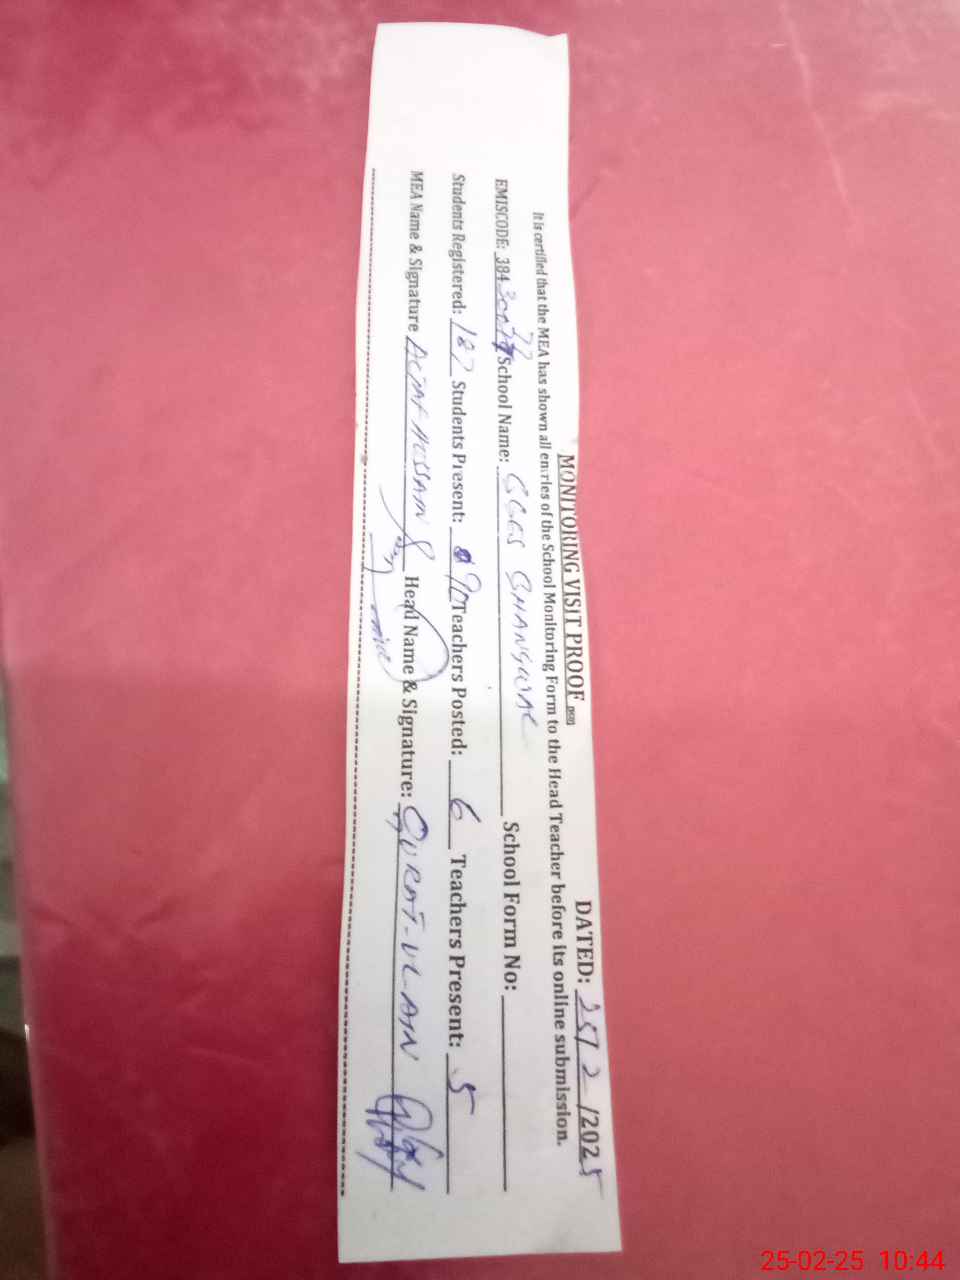 MONITORING VISIT PROOF
DATED: 25/2/2025
It is certified that the MEA has shown all entries of the School Monitoring Form to the Head Teacher before its online submission.
EMISCODE: 384300 School Name: GGES BHANGWAL School Form No:
Students Registered: 187 Students Present: 90 Teachers Posted: 6 Teachers Present: 5
MEA Name & Signature ALTAF HUSSAIN Head Name & Signature: QURAT-UL-AIN
25-02-25 10:44